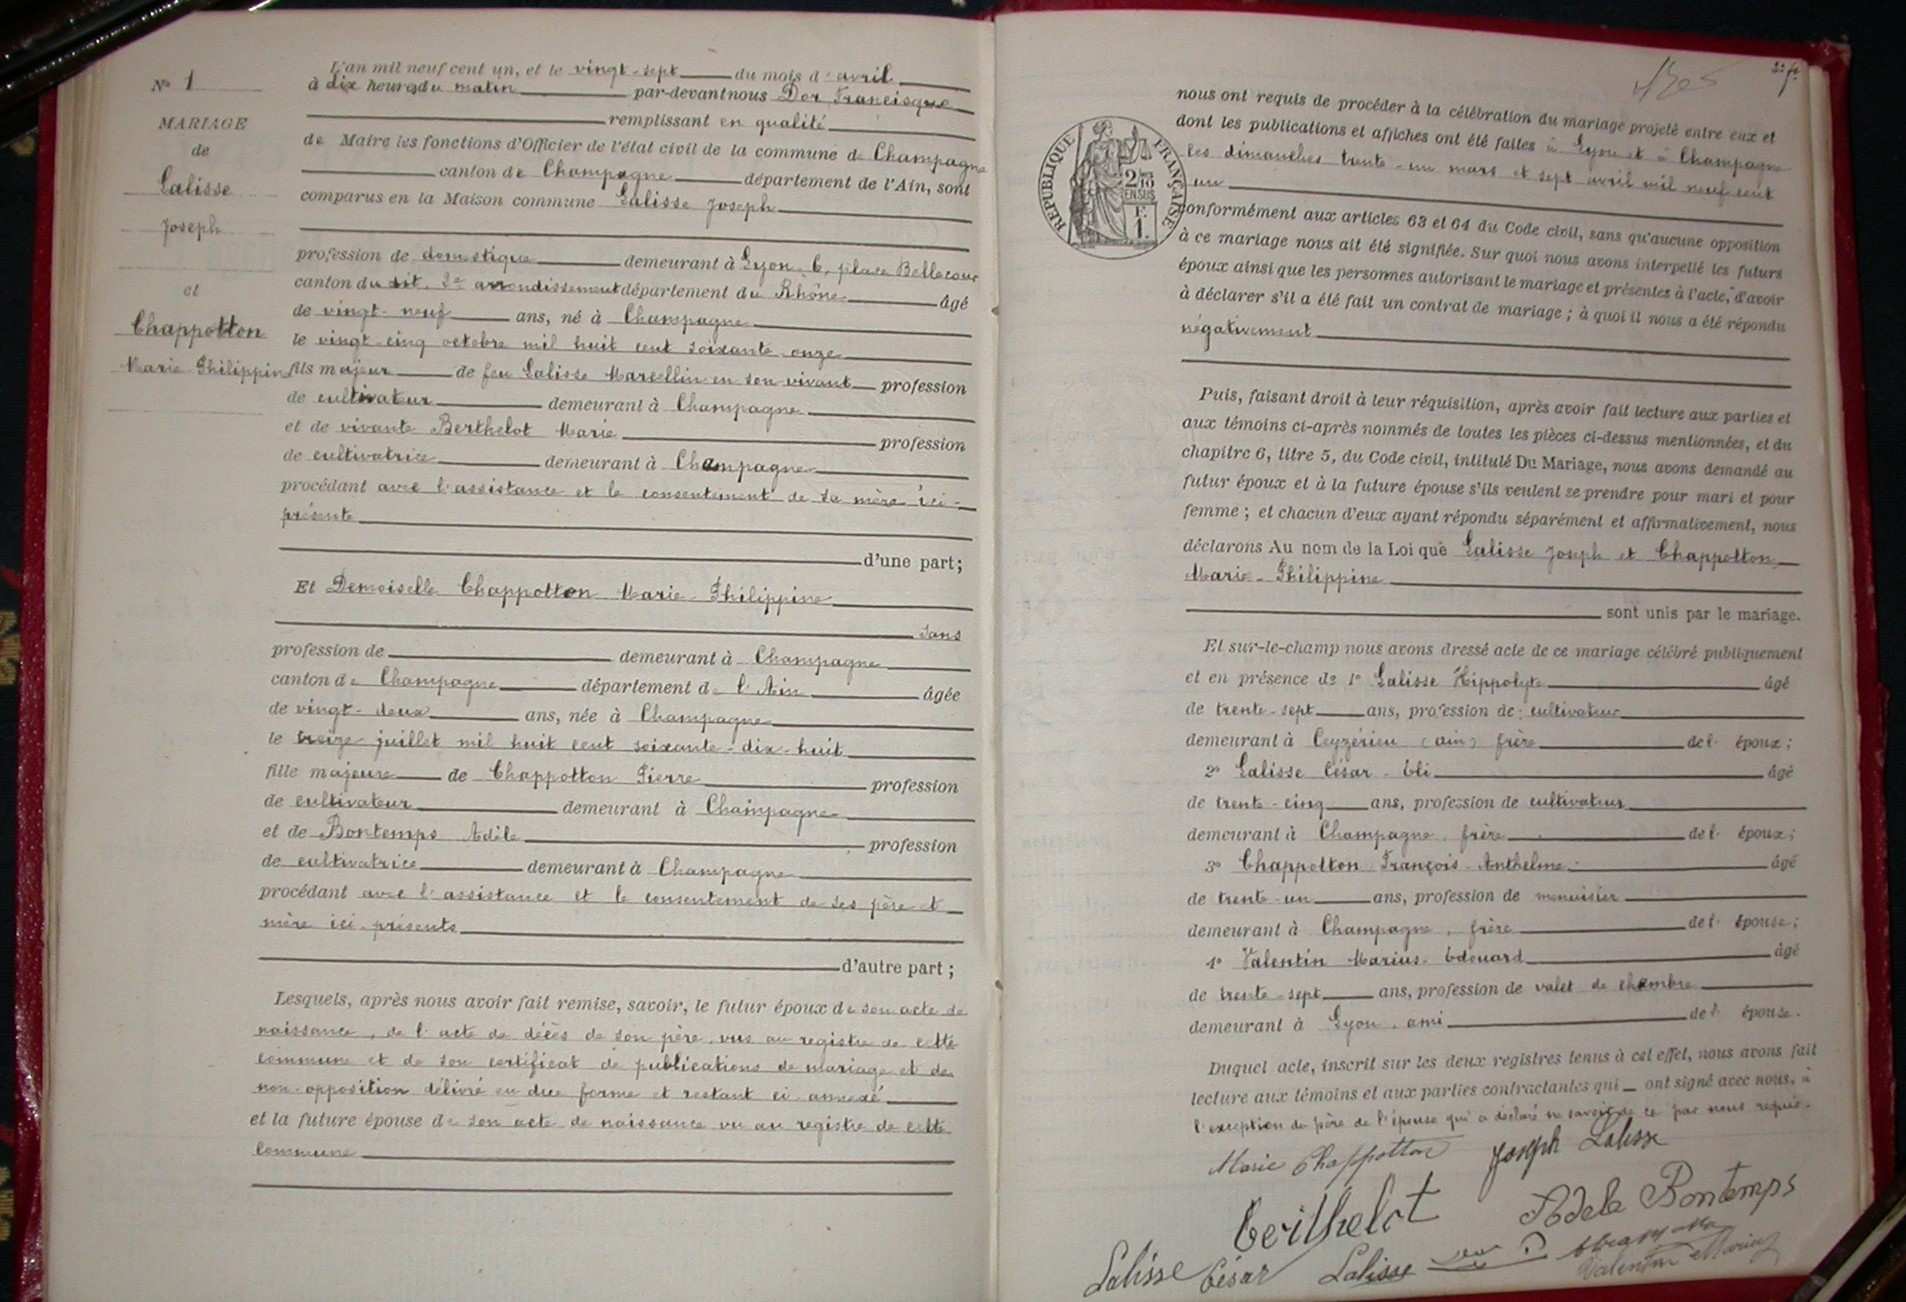 N° 1
MARIAGE
de
Lalisse
Joseph
et
Chappotton
Marie Philippine
L'an mil neuf cent un, et le vingt-sept du mois d'avril
à dix heures du matin par-devant nous Dor Francisque
remplissant en qualité
de Maire les fonctions d'Officier de l'état civil de la commune de Champagne
canton de Champagne département de l'Ain, sont
comparus en la Maison commune Lalisse Joseph
profession de domestique demeurant à Lyon, 6, place Bellecour
canton du dit. 2e arrondissement département du Rhône âgé
de vingt-neuf ans, né à Champagne
le vingt-cinq octobre mil huit cent soixante-onze
fils majeur de feu Lalisse Marcellin en son vivant profession
de cultivateur demeurant à Champagne
et de vivante Berthelot Marie profession
de cultivatrice demeurant à Champagne
procédant avec l'assistance et le consentement de sa mère ici-
présente
d'une part;
Et Demoiselle Chappotton Marie-Philippine
sans
profession de demeurant à Champagne
canton de Champagne département de l'Ain âgée
de vingt-deux ans, née à Champagne
le treize juillet mil huit cent soixante-dix-huit
fille majeure de Chappotton Pierre profession
de cultivateur demeurant à Champagne
et de Bontemps Adèle profession
de cultivatrice demeurant à Champagne
procédant avec l'assistance et le consentement de ses père et
mère ici présents
d'autre part;
Lesquels, après nous avoir fait remise, savoir, le futur époux de son acte de
naissance, de l'acte de décès de son père, vus au registre de cette
commune et de son certificat de publications de mariage et de
non-opposition délivré en due forme et restant ci-annexé
et la future épouse de son acte de naissance vu au registre de cette
commune
2e f.
nous ont requis de procéder à la célébration du mariage projeté entre eux et
dont les publications et affiches ont été faites à Lyon et à Champagne
les dimanches trente-un mars et sept avril mil neuf cent
un
RÉPUBLIQUE FRANÇAISE
2/10
EN SUS
F.
1.
conformément aux articles 63 et 64 du Code civil, sans qu'aucune opposition
à ce mariage nous ait été signifiée. Sur quoi nous avons interpellé les futurs
époux ainsi que les personnes autorisant le mariage et présentes à l'acte, d'avoir
à déclarer s'il a été fait un contrat de mariage; à quoi il nous a été répondu
négativement
Puis, faisant droit à leur réquisition, après avoir fait lecture aux parties et
aux témoins ci-après nommés de toutes les pièces ci-dessus mentionnées, et du
chapitre 6, titre 5, du Code civil, intitulé Du Mariage, nous avons demandé au
futur époux et à la future épouse s'ils veulent se prendre pour mari et pour
femme; et chacun d'eux ayant répondu séparément et affirmativement, nous
déclarons Au nom de la Loi que Lalisse Joseph et Chappotton
Marie-Philippine
sont unis par le mariage.
Et sur-le-champ nous avons dressé acte de ce mariage célébré publiquement
et en présence de 1° Lalisse Hippolyte âgé
de trente-sept ans, profession de cultivateur
demeurant à Ceyzérieu (Ain) frère de l'époux;
2° Lalisse César-Eli âgé
de trente-cinq ans, profession de cultivateur
demeurant à Champagne, frère de l'époux;
3° Chappotton François-Anthelme âgé
de trente-un ans, profession de menuisier
demeurant à Champagne, frère de l'épouse;
4° Valentin Marius-Edouard âgé
de trente-sept ans, profession de valet de chambre
demeurant à Lyon, ami de l'épouse.
Duquel acte, inscrit sur les deux registres tenus à cet effet, nous avons fait
lecture aux témoins et aux parties contractantes qui ont signé avec nous, à
l'exception du père de l'épouse qui a déclaré ne savoir de ce par nous requis.
Marie Chappotton Joseph Lalisse
Berthelot Adele Bontemps
Lalisse César Lalisse
Valentin Marius